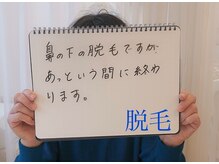 鼻の下の脱毛ですが
あっという間に終わ
ります。
脱毛